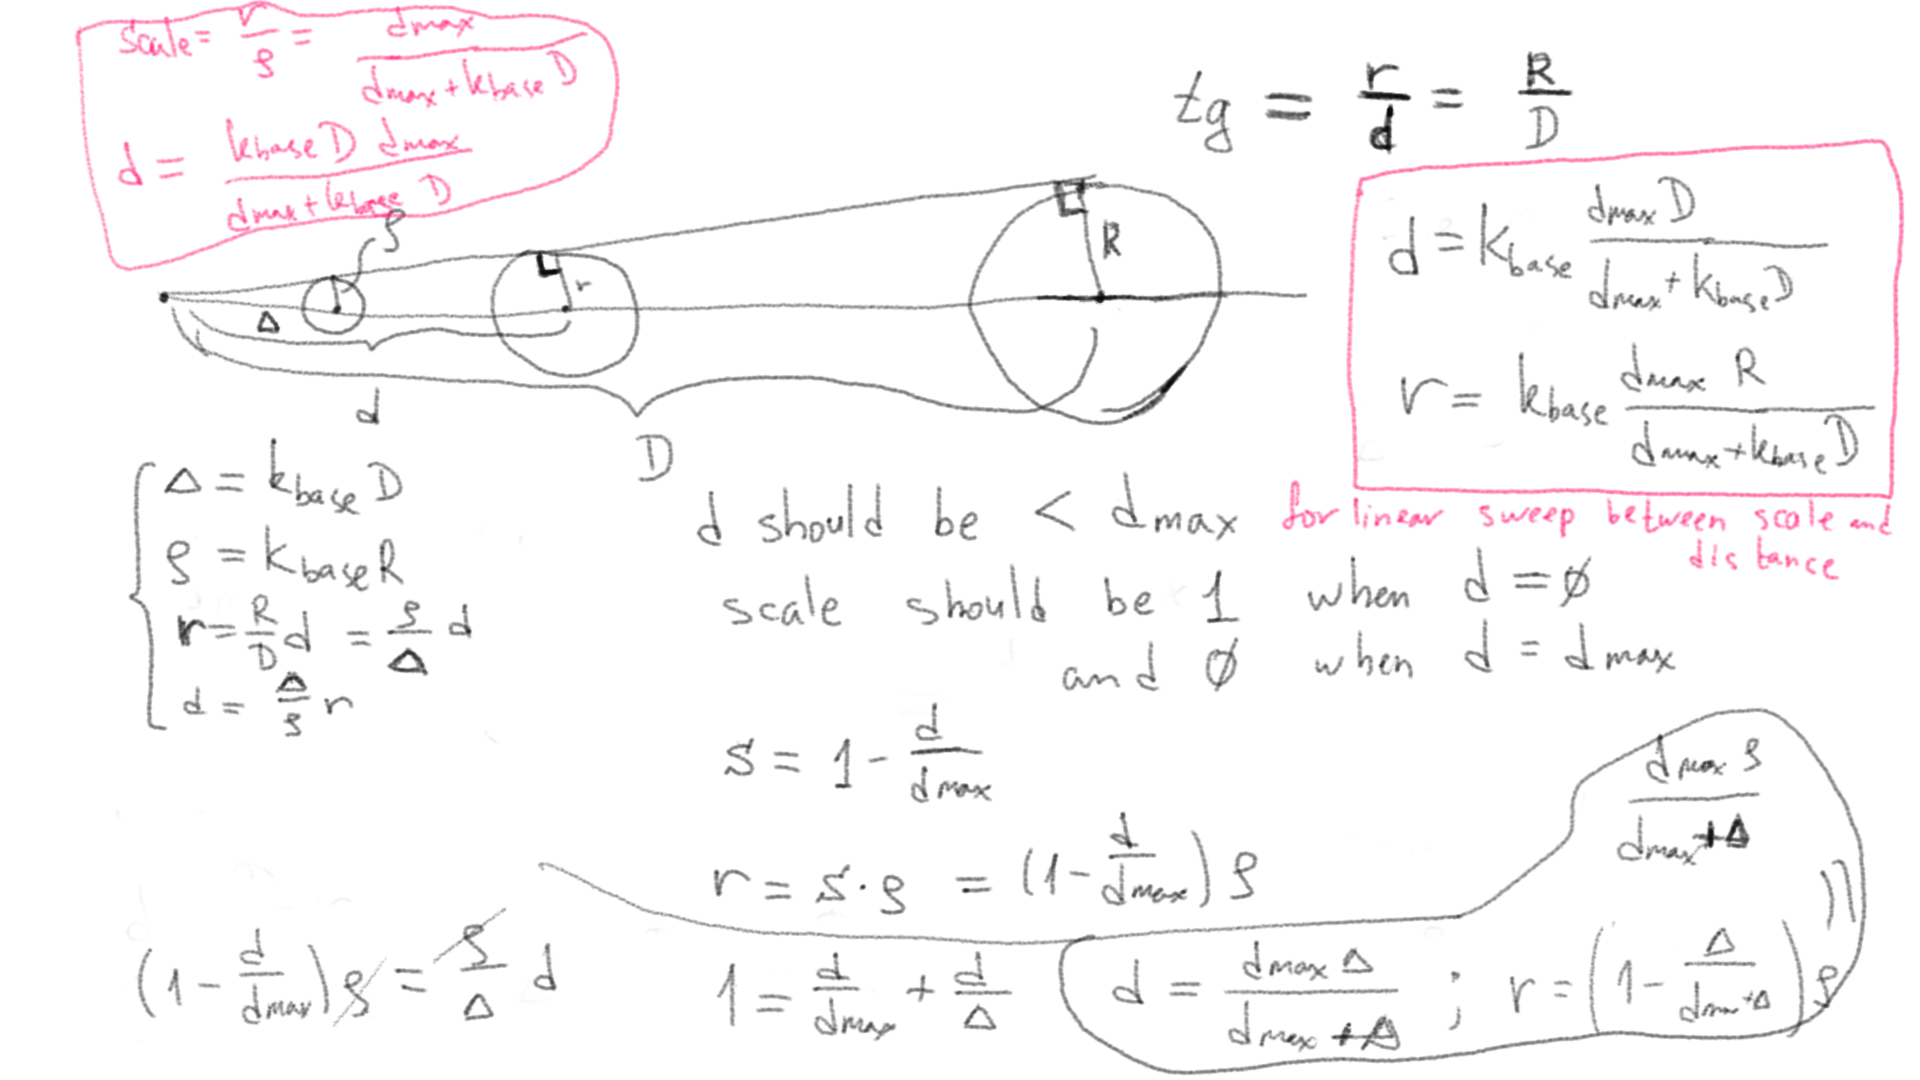 scale = r/ρ = dmax/(dmax + kbase D)
d = kbase D dmax/(dmax + kbase D)
tg = r/d = R/D
ρ
r
R
Δ
d
D
d = kbase dmax D/(dmax + kbase D)
r = kbase dmax R/(dmax + kbase D)
Δ = kbase D
ρ = kbase R
r = R/D d = ρ/Δ d
d = Δ/ρ r
d should be < dmax for linear sweep between scale and
distance
scale should be 1 when d = ∅
and ∅ when d = dmax
s = 1 - d/dmax
r = s·ρ = (1 - d/dmax) ρ
(1 - d/dmax) ρ = ρ/Δ d
1 = d/dmax + d/Δ
d = dmax Δ/(dmax + Δ) ; r = (1 - Δ/(dmax + Δ)) ρ
= dmax ρ/(dmax + Δ)